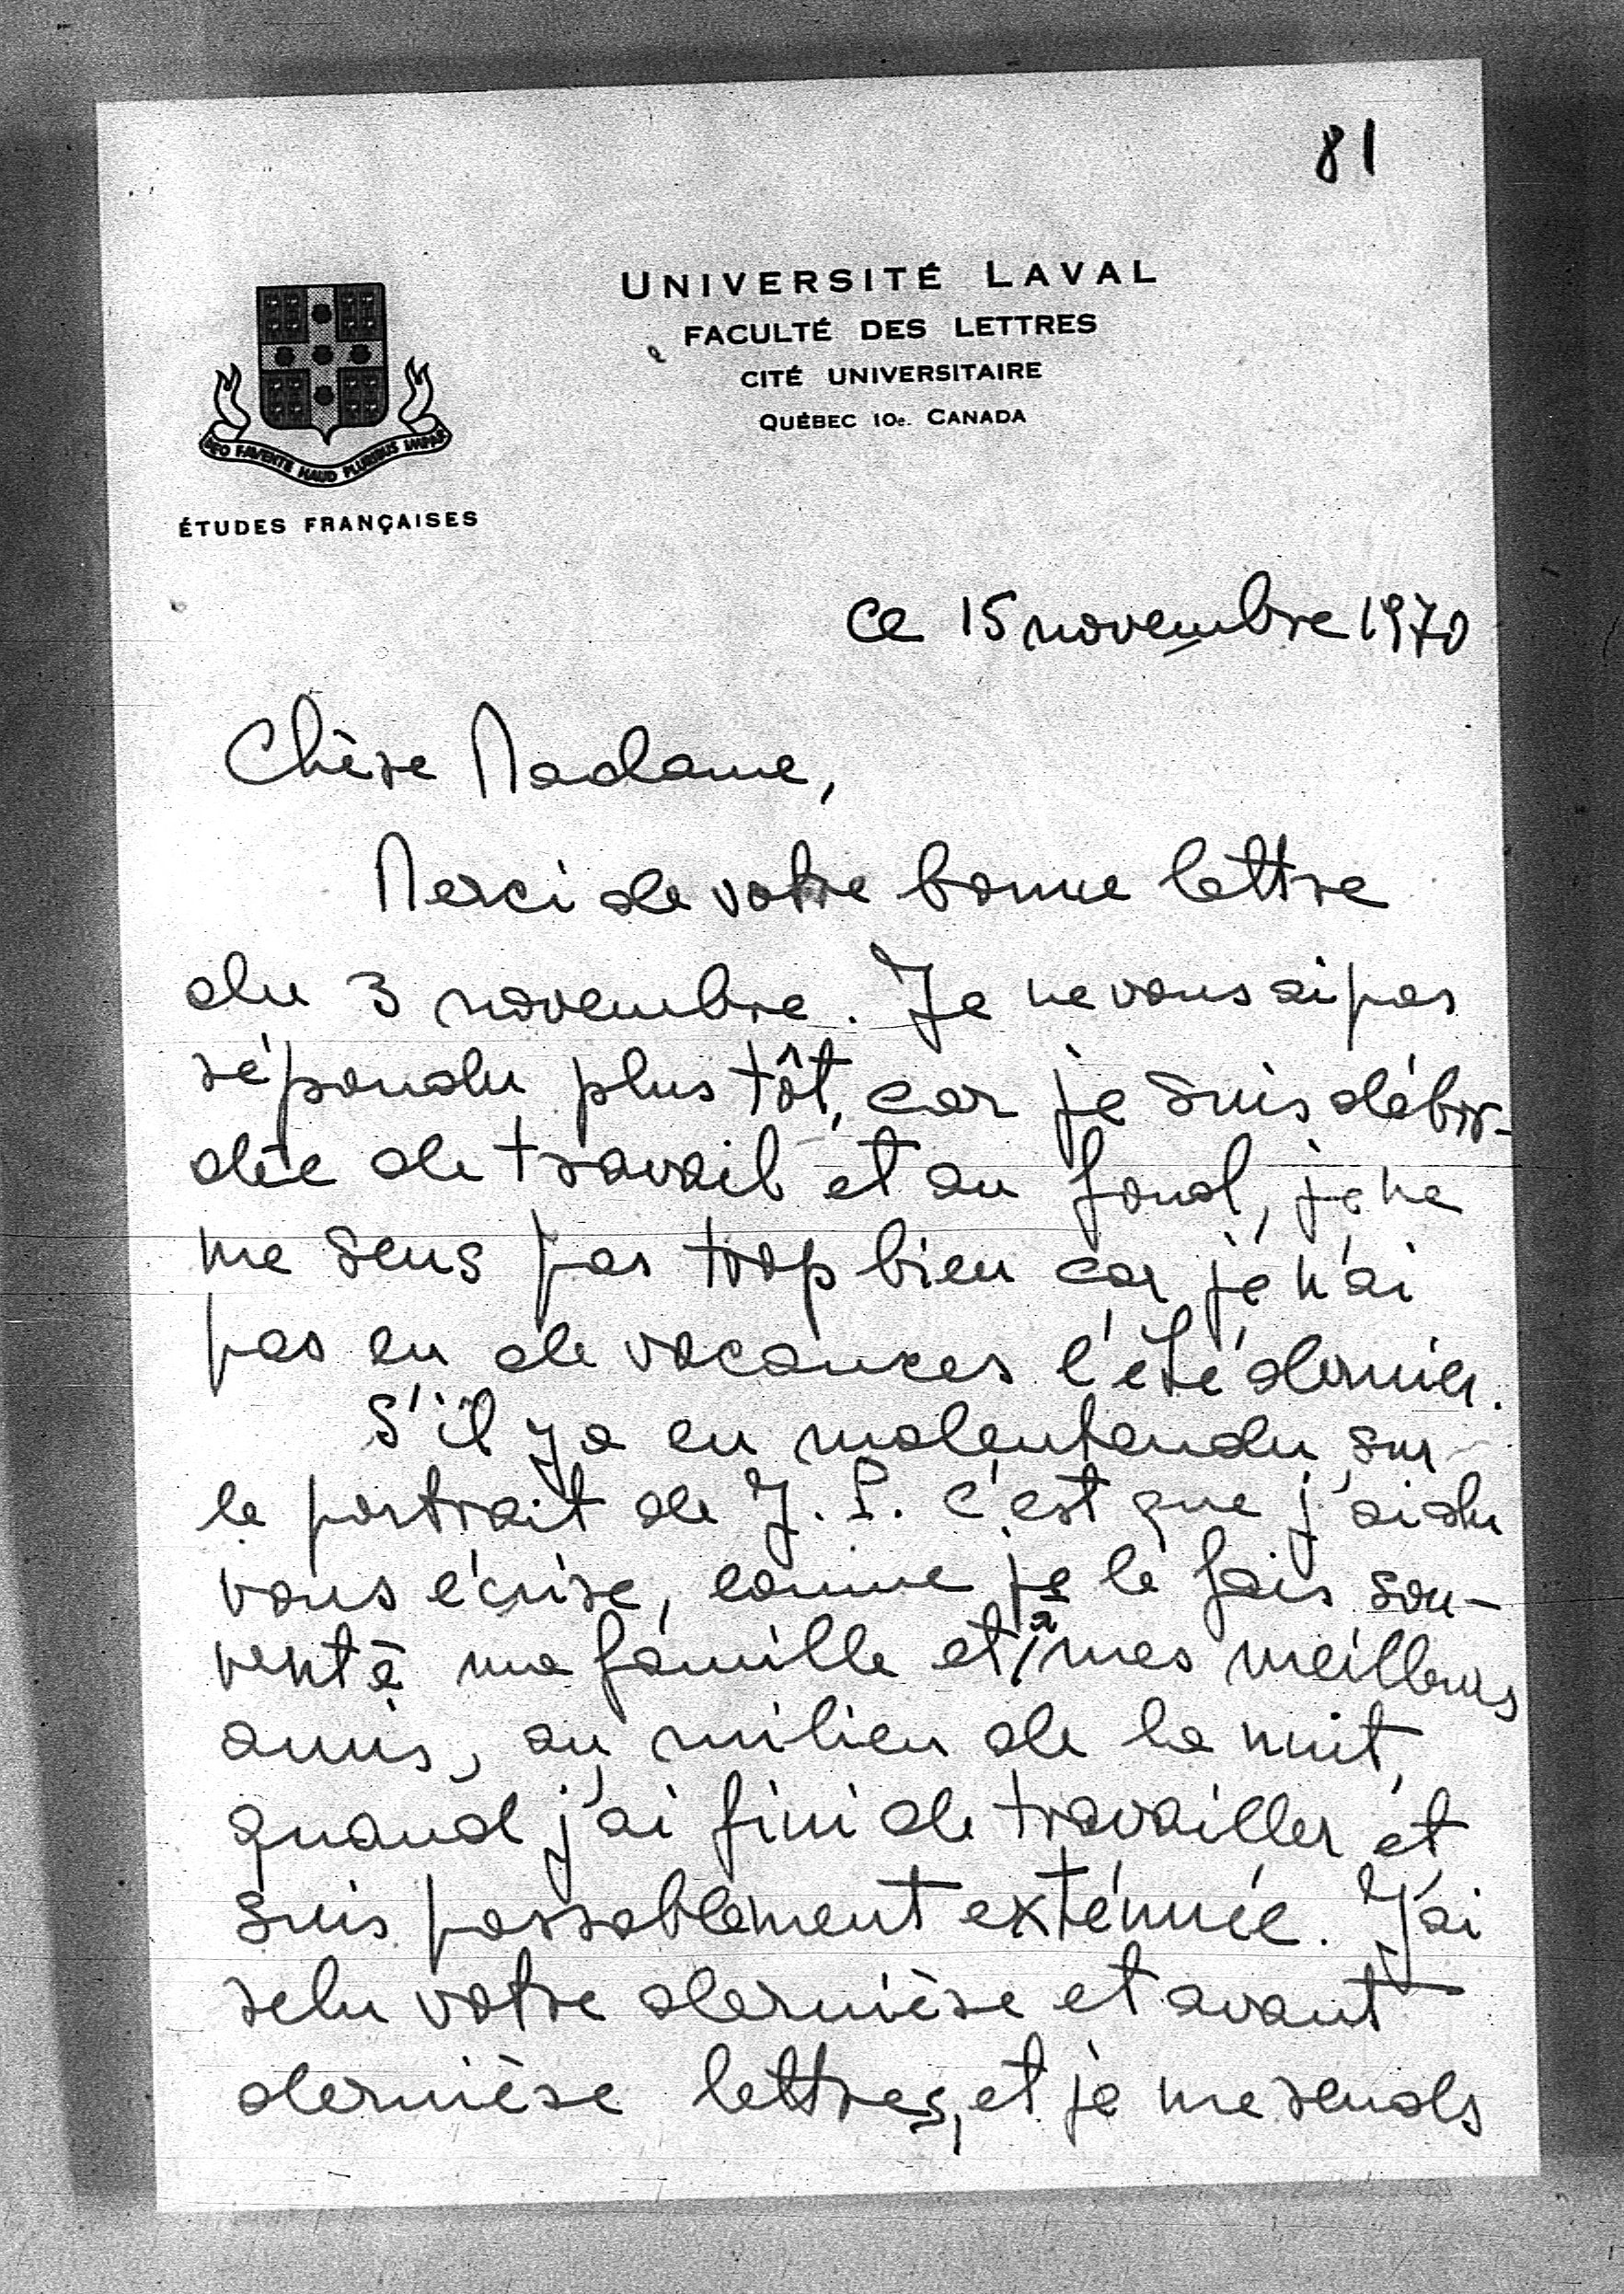 81
UNIVERSITÉ LAVAL
FACULTÉ DES LETTRES
CITÉ UNIVERSITAIRE
QUÉBEC 10e. CANADA
DEO FAVENTE HAUD PLURIBUS IMPAR
ÉTUDES FRANÇAISES
ce 15 novembre 1970
Chère Madame,
Merci de votre bonne lettre
du 3 novembre. Je ne vous ai pas
répondu plus tôt, car je suis débor-
dée de travail et au fond, je ne
me sens pas trop bien car je n'ai
pas eu de vacances l'été dernier.
S'il y a eu malentendu sur
le portrait de J. P. c'est que j'ai du
vous écrire, comme je le fais sou-
vent à ma famille et à mes meilleurs
amis, au milieu de la nuit,
quand j'ai fini de travailler et
suis passablement exténuée. J'ai
relu votre dernière et avant
dernière lettres, et je me rends